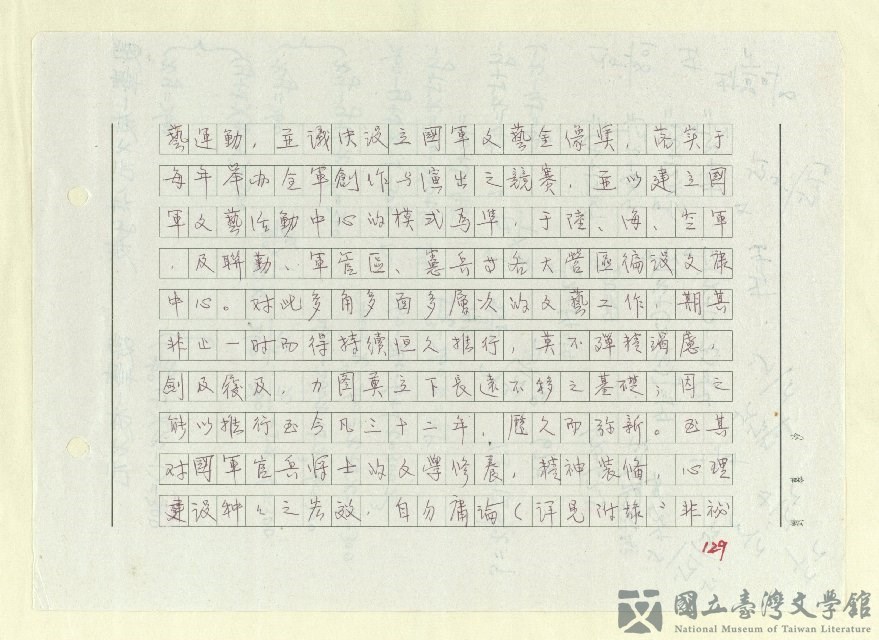 藝運動，並議決設立國軍文藝金像獎，落实于
每年举办全軍創作与演出之競賽，並以建立國
軍文藝活動中心的模式為準，于陸、海、空軍
，及聯勤、軍管區、憲兵等各大營區徧設文康
中心。对此多角多面多層次的文藝工作，期其
非止一时而得持續恒久推行，莫不殫精竭慮，
劍及履及，力图奠立下長遠不移之基礎；因之
能以推行至今凡三十二年，歷久而弥新。至其
对國軍官兵将士的文學修養，精神装備，心理
建设种々之宏效，自勿庸論（詳見附錄〝非祕
129
國立臺灣文學館
National Museum of Taiwan Literature